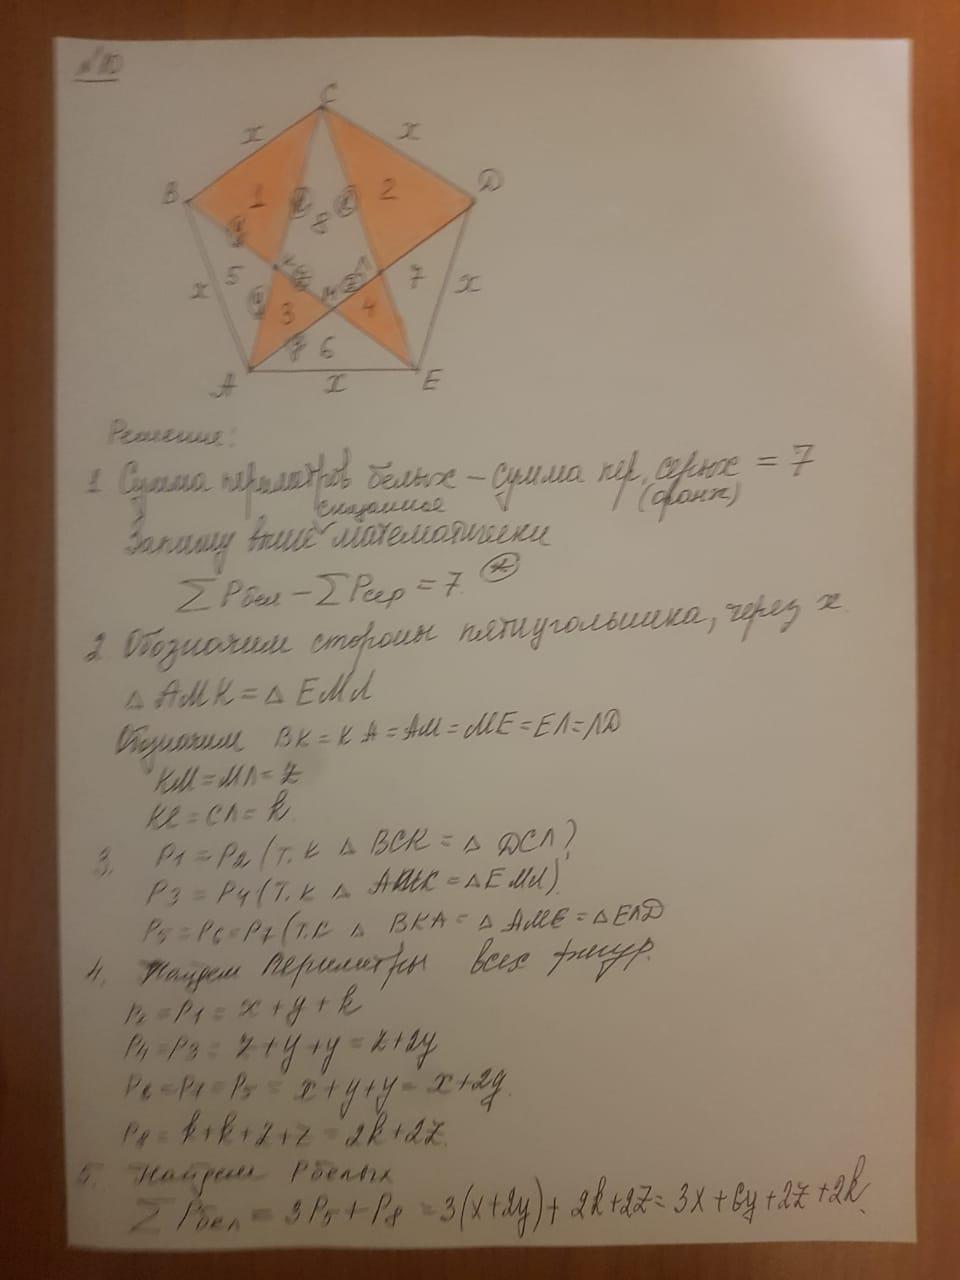 №10
C
x
x
B
Д
1
2
8
5
K
Л
7
x
M
x
3
4
6
A
x
E
Решение:
1 Сумма периметров белых - Сумма пер. серых = 7
(оранж)
сказанное
Запишу выше математически
∑Pбел - ∑Pсер = 7 *
2 Обозначим стороны пятиугольника, через x.
△ AMK = △ EMЛ
Обозначим BK = KA = AM = ME = EЛ = ЛД
KM = MЛ = z
KC = CЛ = k
3. P1 = P2 (т.к △ BCK = △ ДCЛ)
P3 = P4 (т.к △ AMK = △ EMЛ)
P5 = P6 = P7 (т.к △ BKA = △ AME = △ EЛД
4. Найдем периметры всех фигур.
P2 = P1 = x + y + k
P4 = P3 = z + y + y = z + 2y
P6 = P7 = P5 = x + y + y = x + 2y.
P8 = k + k + z + z = 2k + 2z.
5. Найдем Pбелых
∑ Pбел = 3P5 + P8 = 3(x + 2y) + 2k + 2z = 3x + 6y + 2z + 2k.